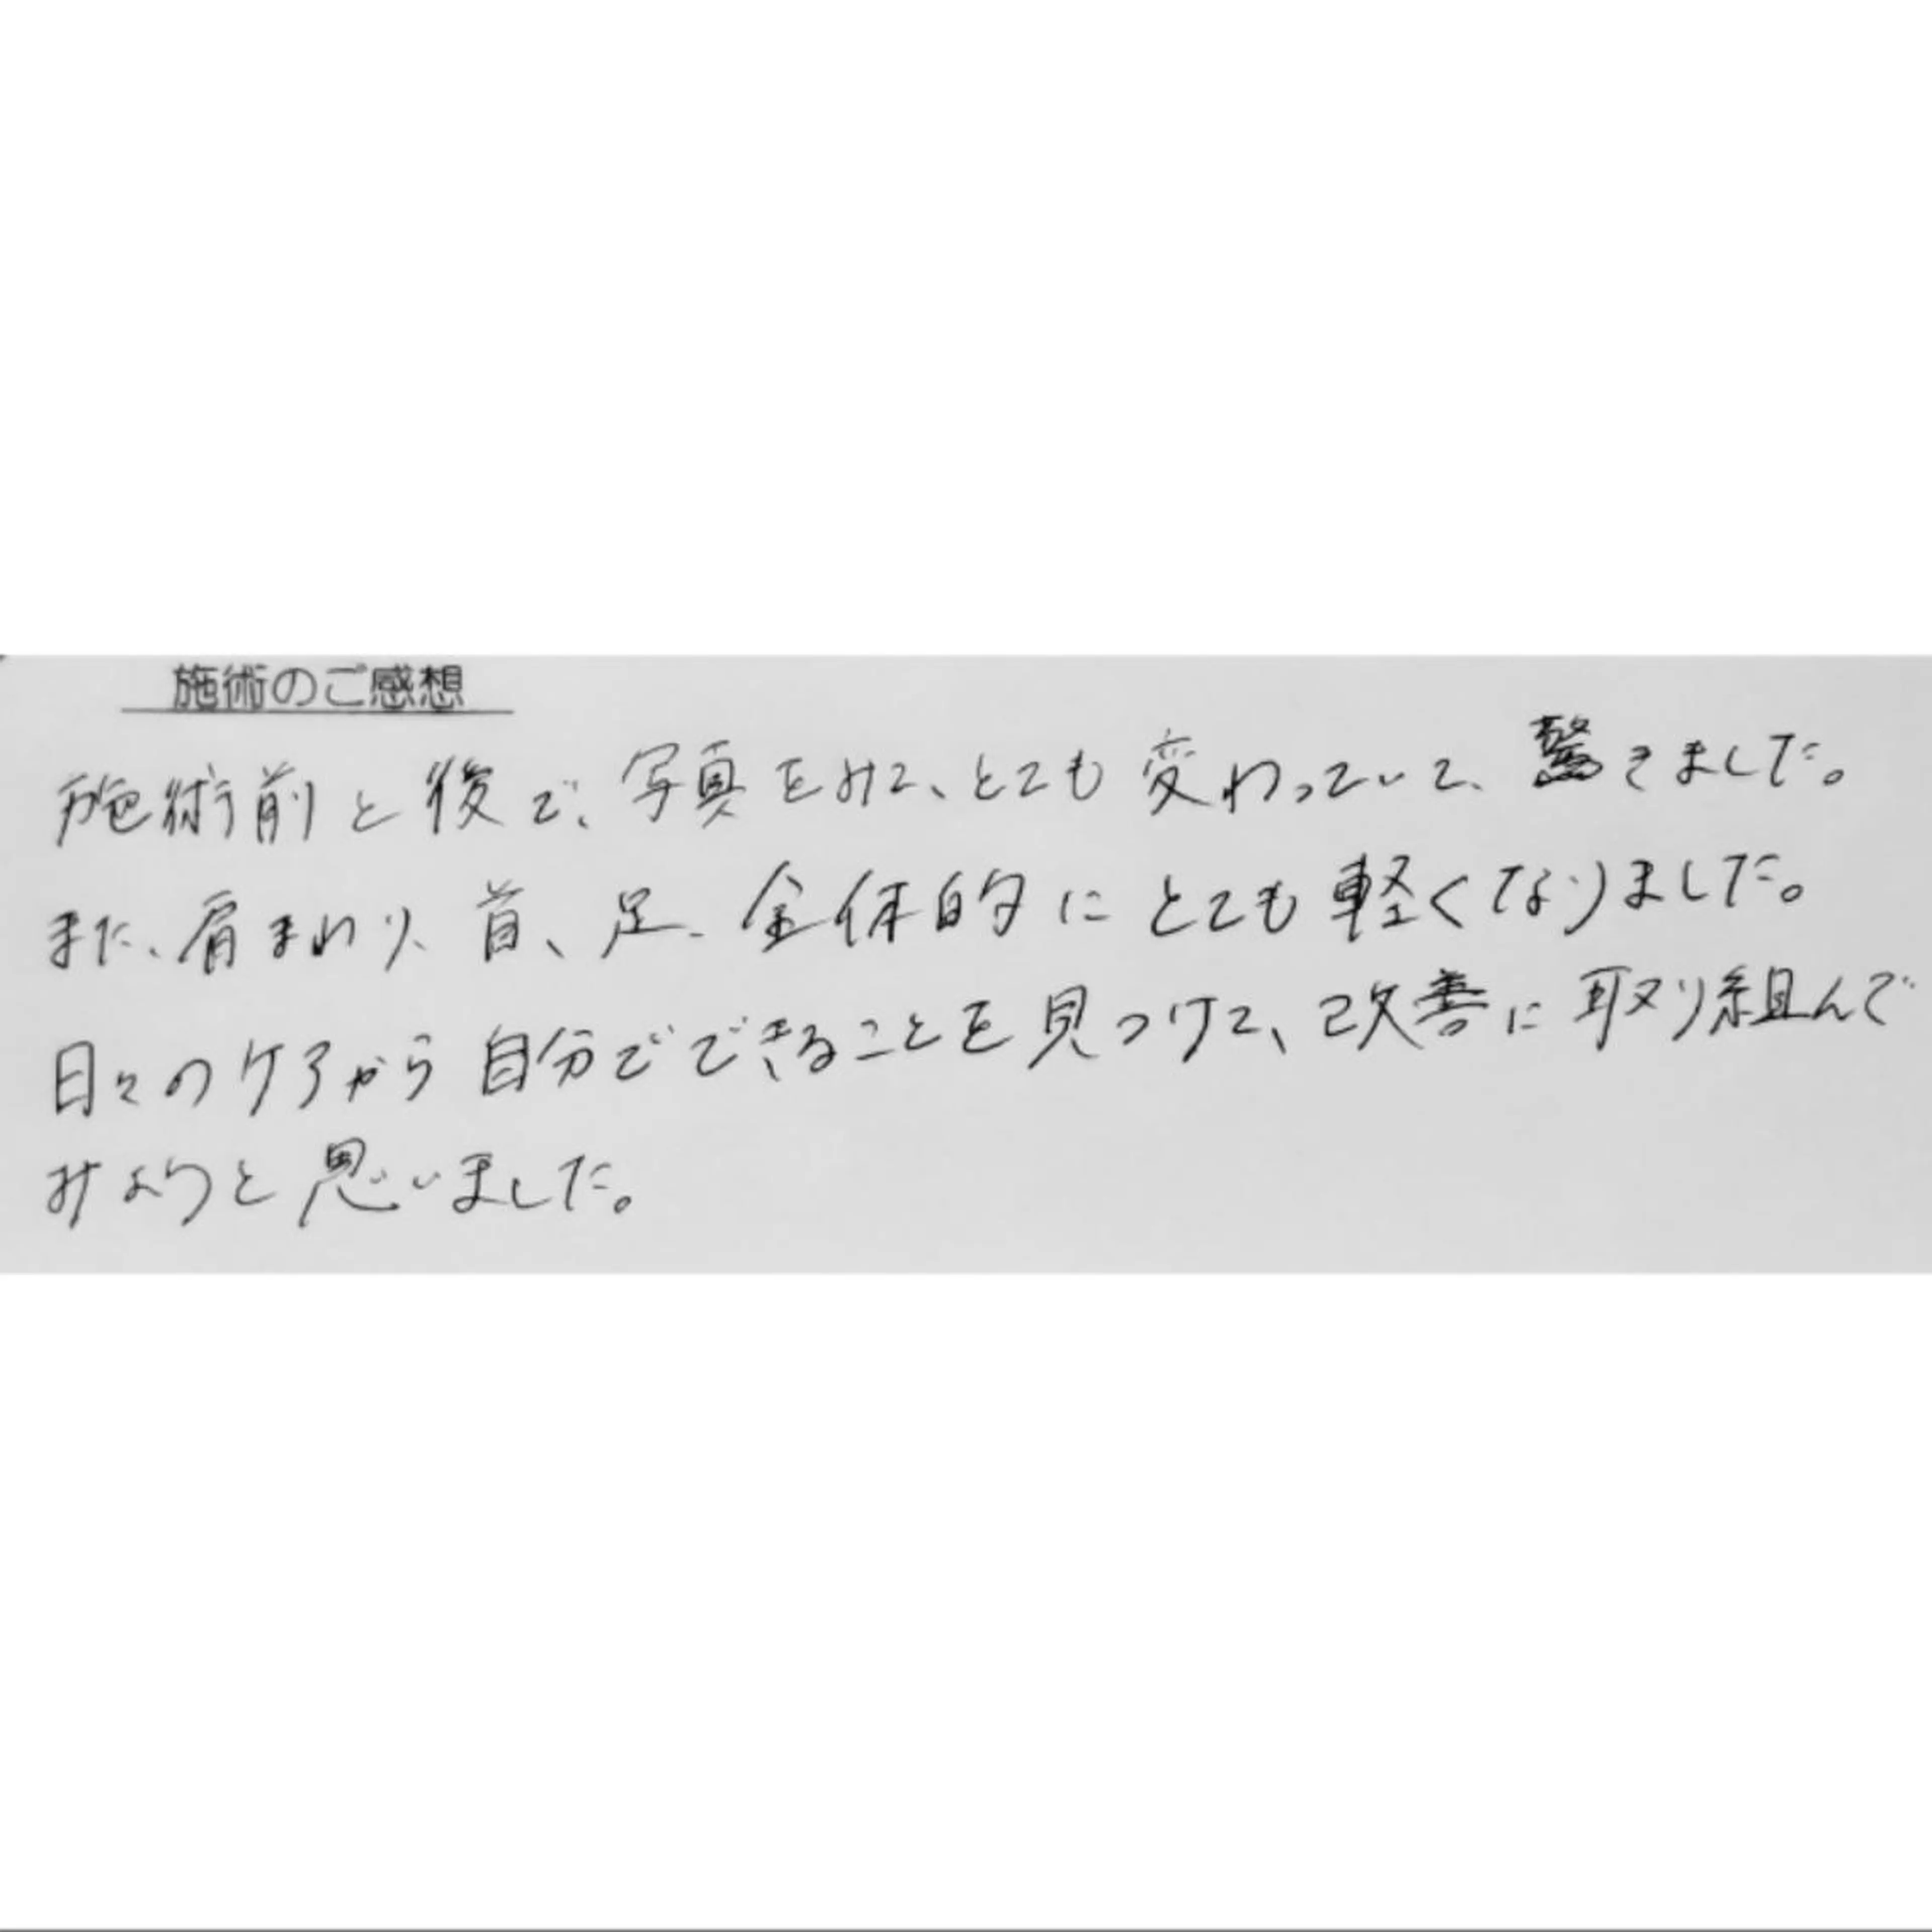 施術のご感想
施術前と後で、写真をみて、とても変わっていて、驚きました。
また、肩まわり、首、足、全体的にとても軽くなりました。
日々のケアから自分でできることを見つけて、改善に取り組んで
みようと思いました。